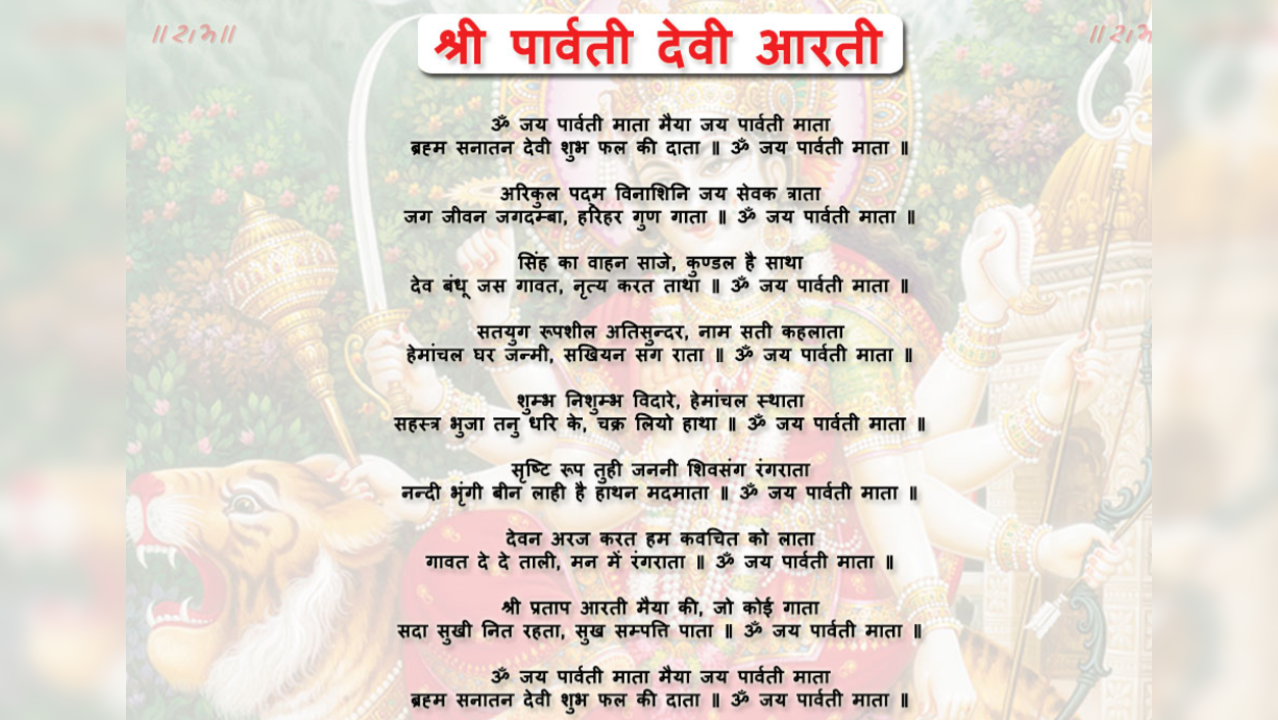 ॥રામ॥
॥રામ
श्री पार्वती देवी आरती
ॐ जय पार्वती माता मैया जय पार्वती माता
ब्रह्म सनातन देवी शुभ फल की दाता ॥ ॐ जय पार्वती माता ॥
अरिकुल पद्म विनाशिनि जय सेवक त्राता
जग जीवन जगदम्बा, हरिहर गुण गाता ॥ ॐ जय पार्वती माता ॥
सिंह का वाहन साजे, कुण्डल है साथा
देव बंधू जस गावत, नृत्य करत ताथा ॥ ॐ जय पार्वती माता ॥
सतयुग रूपशील अतिसुन्दर, नाम सती कहलाता
हेमांचल घर जन्मी, सखियन संग राता ॥ ॐ जय पार्वती माता ॥
शुम्भ निशुम्भ विदारे, हेमांचल स्थाता
सहस्त्र भुजा तनु धरि के, चक्र लियो हाथा ॥ ॐ जय पार्वती माता ॥
सृष्टि रूप तुही जननी शिवसंग रंगराता
नन्दी भृंगी बीन लाही है हाथन मदमाता ॥ ॐ जय पार्वती माता ॥
देवन अरज करत हम कवचित को लाता
गावत दे दे ताली, मन में रंगराता ॥ ॐ जय पार्वती माता ॥
श्री प्रताप आरती मैया की, जो कोई गाता
सदा सुखी नित रहता, सुख सम्पत्ति पाता ॥ ॐ जय पार्वती माता ॥
ॐ जय पार्वती माता मैया जय पार्वती माता
ब्रह्म सनातन देवी शुभ फल की दाता ॥ ॐ जय पार्वती माता ॥